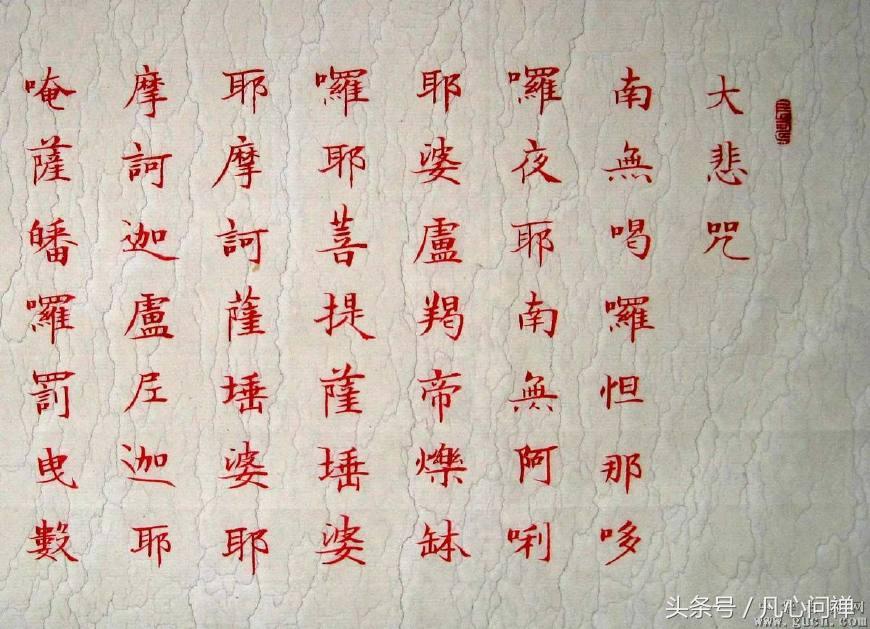 大悲咒
南無喝囉怛那哆
囉夜耶南無阿唎
耶婆盧羯帝爍缽
囉耶菩提薩埵婆
耶摩訶薩埵婆耶
摩訶迦盧尼迦耶
唵薩皤囉罰曳數
头条号／凡心问禅
www.gucn.com